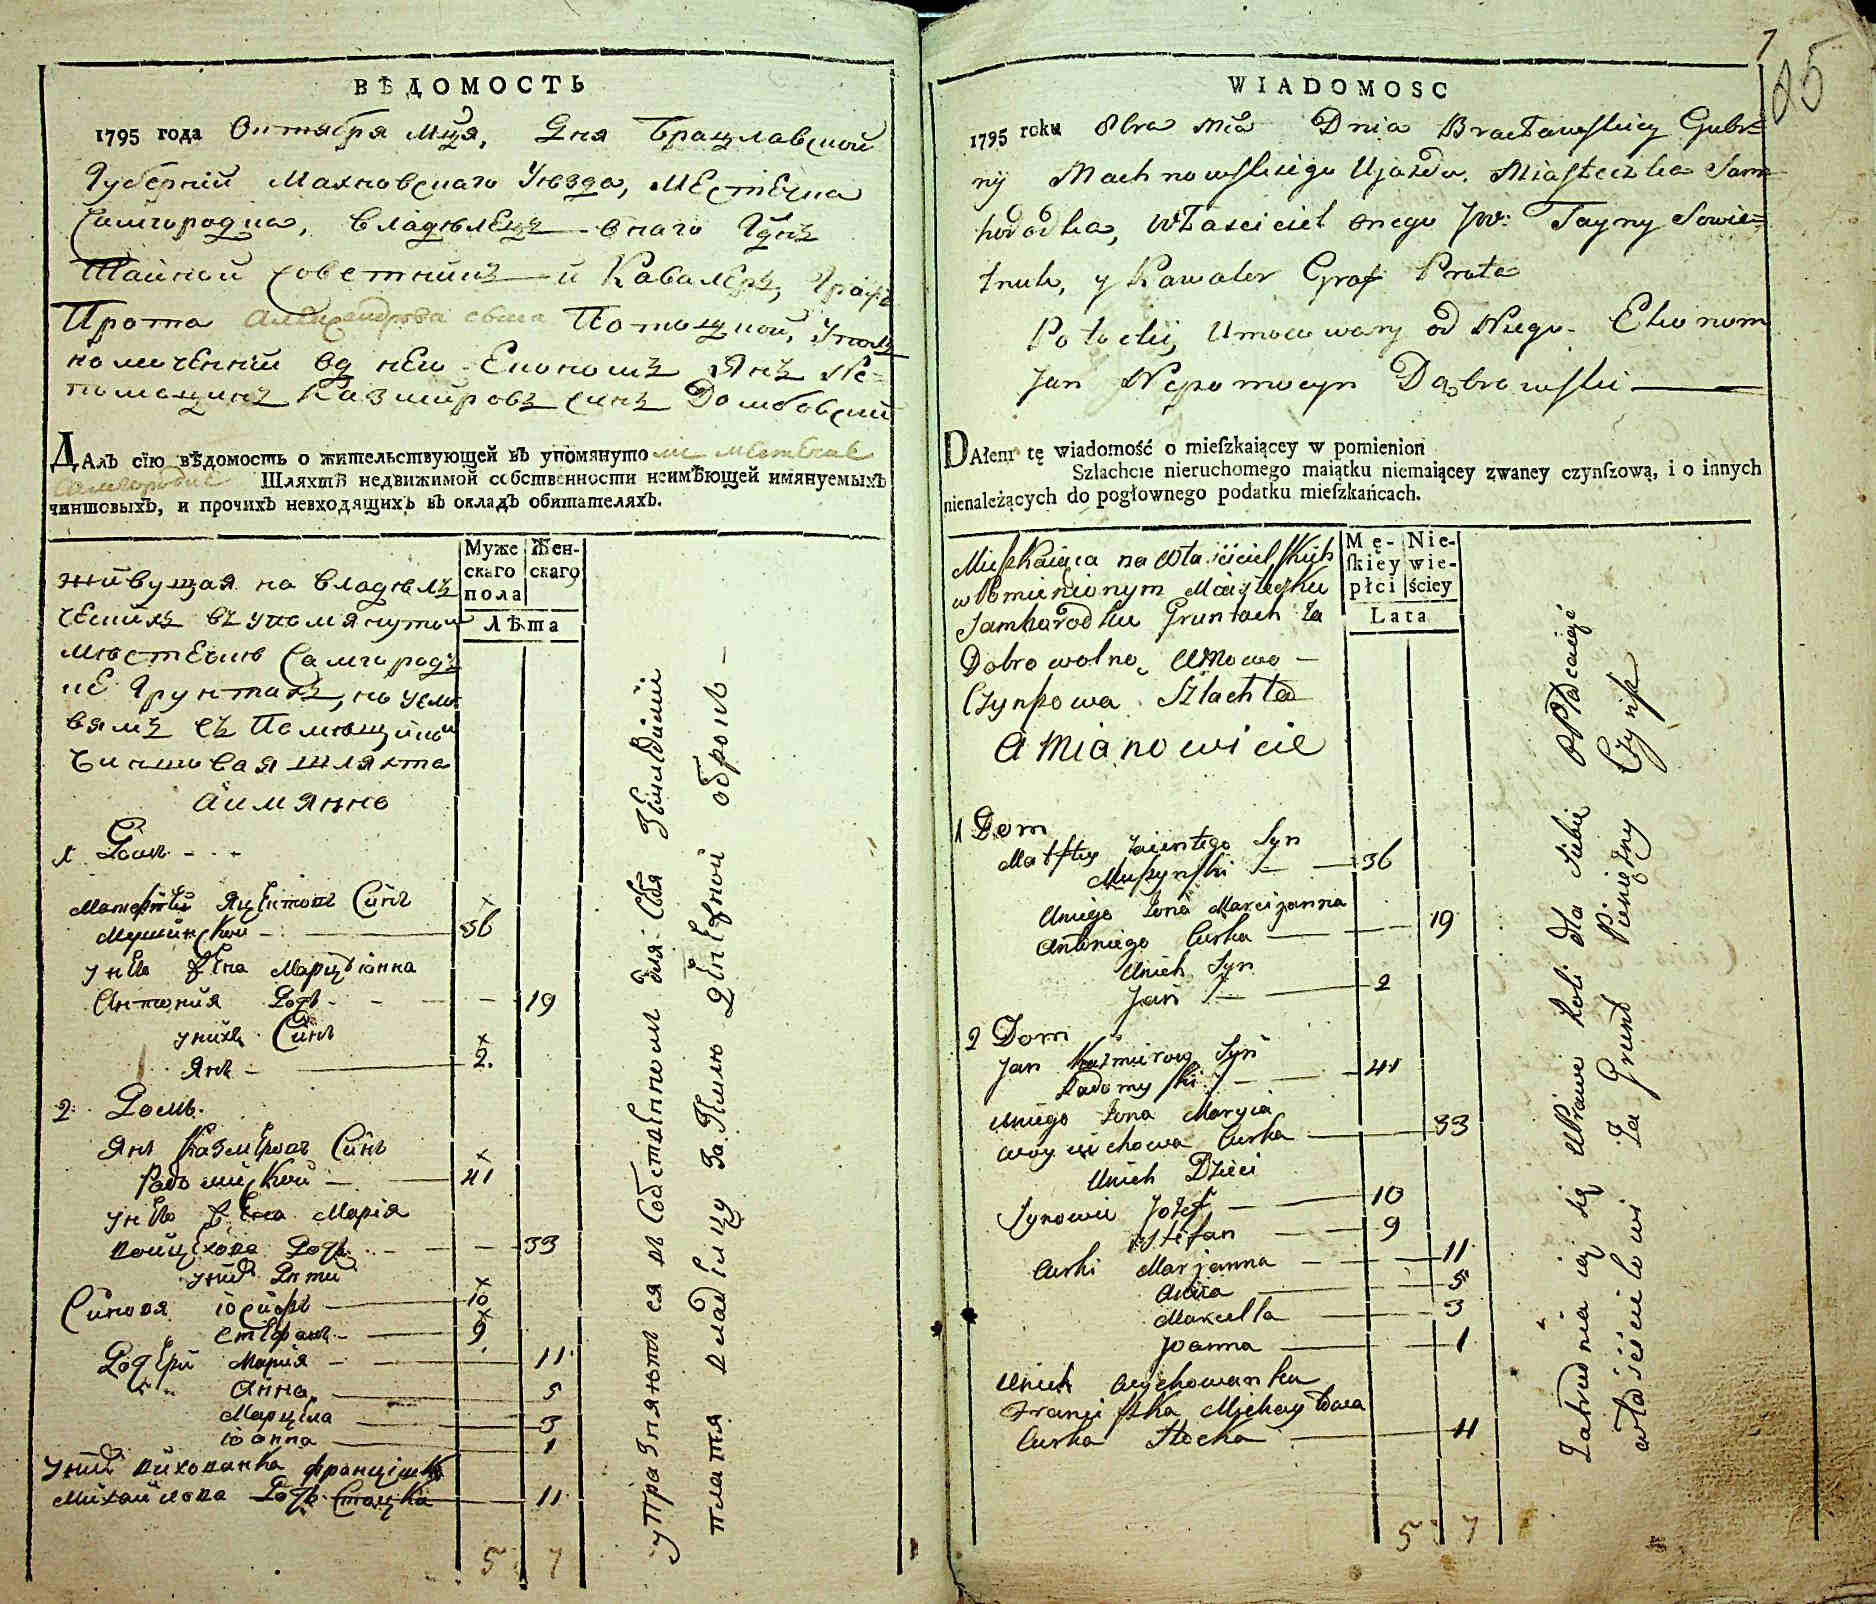 ВѢДОМОСТЬ
1795 года Октября мця, Дня Брацлавской
Губернїи Махновскаго Уезда, Местечка
Самгородка, владѣлецъ онаго Гднъ
Тайной советникъ и Кавалеръ, Графъ
Прота Александрова сына Потоцкой, упол
номоченнїй од него Економъ Янъ Не-
помоцинъ Казмировъ синъ Домбовскїй
ДАлъ сїю вѣдомость о жительствующей въ упомянутомъ местечке
Самгородке Шляхтѣ недвижимой собственности неимѣющей имянуемыхъ
чиншовыхъ, и прочихъ невходящихъ въ окладъ обитателяхъ.
Муже Жен-
скаго скаго
пола
Лѣта
живущая на владѣлъ
ческихъ въ упомянутом
мѣстечкѣ Самгородъ
ке Грунтахъ, по усло
вямъ съ Помѣщиком
Чиншовая шляхта
а имяннѣ
1 Домъ
Матфей Яцентовъ Синъ
Мушинской 36
у него жена Марцїянна
Антонія Дочь 19
у нихъ Синъ
Янъ 2.
2. Домъ.
Янъ Казмеровъ Синъ
Радомиской 41
у него жена Марія
Войцехова Дочь 33
у нихъ Дети
Синовя іосифъ 10
Стефанъ 9.
Дочери Марія 11
Анна 5
Марцела 3
іоанна 1
у нихъ вихованка францишка
Михайлова Дочь Стоцка 11
5 7
упразняются в
платя владелцу За Землю денежной оброкъ
7
85
WIADOMOSC
1795 roku 8bra Mca Dnia Bracławskiey Guber=
nij Machnowskiego Ujazdu. Miasteczka Sam=
horodka, Właściciel onego JW: Tayny Sowie=
tnik, y Kawaler Graf Prota
Potocki, Umocowany od Niego Ekonom
Jan Nepomucyn Dąbrowski
DAłem tę wiadomość o mieſzkaiącey w pomienion
Szlachcie nieruchomego maiątku niemaiącey zwaney czynſzową, i o innych
nienależących do pogłownego podatku mieſzkańcach.
Mę- Nie-
ſkiey wie-
płci ściey
Lata
Mieszkaiąca na Właścicielskich
w Pomienionym Miasteczku
Samharodku Gruntach za
Dobrowolną Umową
Czynszowa Szlachta
a Mianowicie
1 Dom
Matfiey Jacentego Syn
Muszynski 36
Uniego Zona Marcijanna
Antoniego Curka 19
Unich Syn
Jan 2
2 Dom
Jan Kazmirow Syn
Radomyski 41
Uniego Zona Maryia
Woyciechowa Curka 33
Unich Dzieci
Synowie Jozef 10
Stefan 9
Curki Marjanna 11
Anna 5
Marcella 3
Joanna 1
Unich Wychowanka
Franciszka Michayłowa
Curka Stocka 11
5 7
Zatrudnia się Uprawą Roli dla Siebie Opłacaiąc
właścicielowi Za Grunt Pieniężny Czynsz